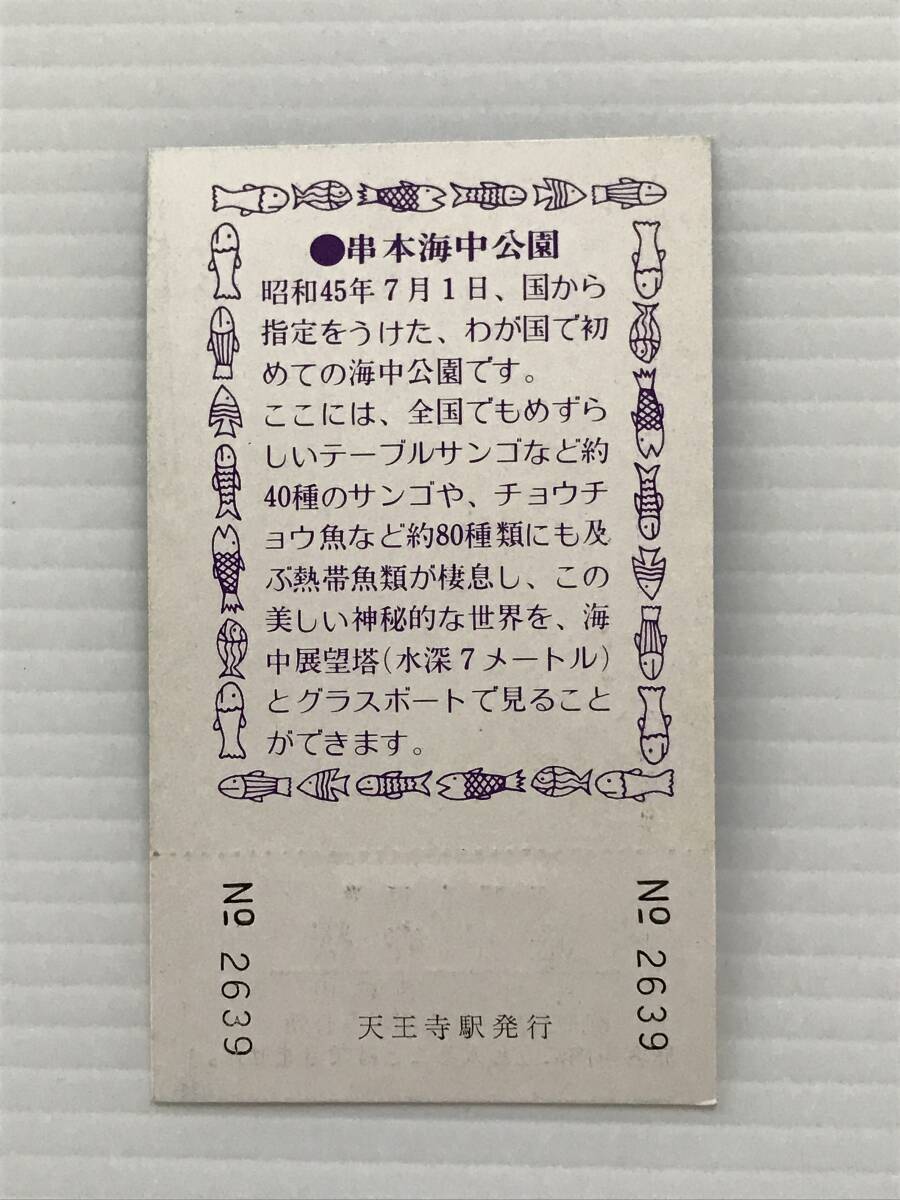 ●串本海中公園
昭和45年7月1日、国から
指定をうけた、わが国で初
めての海中公園です。
ここには、全国でもめずら
しいテーブルサンゴなど約
40種のサンゴや、チョウチ
ョウ魚など約80種類にも及
ぶ熱帯魚類が棲息し、この
美しい神秘的な世界を、海
中展望塔(水深7メートル)
とグラスボートで見ること
ができます。
№ 2639
№ 2639
天王寺駅発行